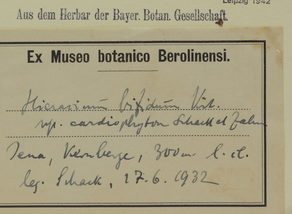 Leipzig 1942
Aus dem Herbar der Bayer. Botan. Gesellschaft.
Ex Museo botanico Berolinensi.
Hieracium bifidum Kit.
ssp. cardiophyton Schack et Zahn
Jena, Kernberge, 300 m
leg. Schack, 17.6.1932